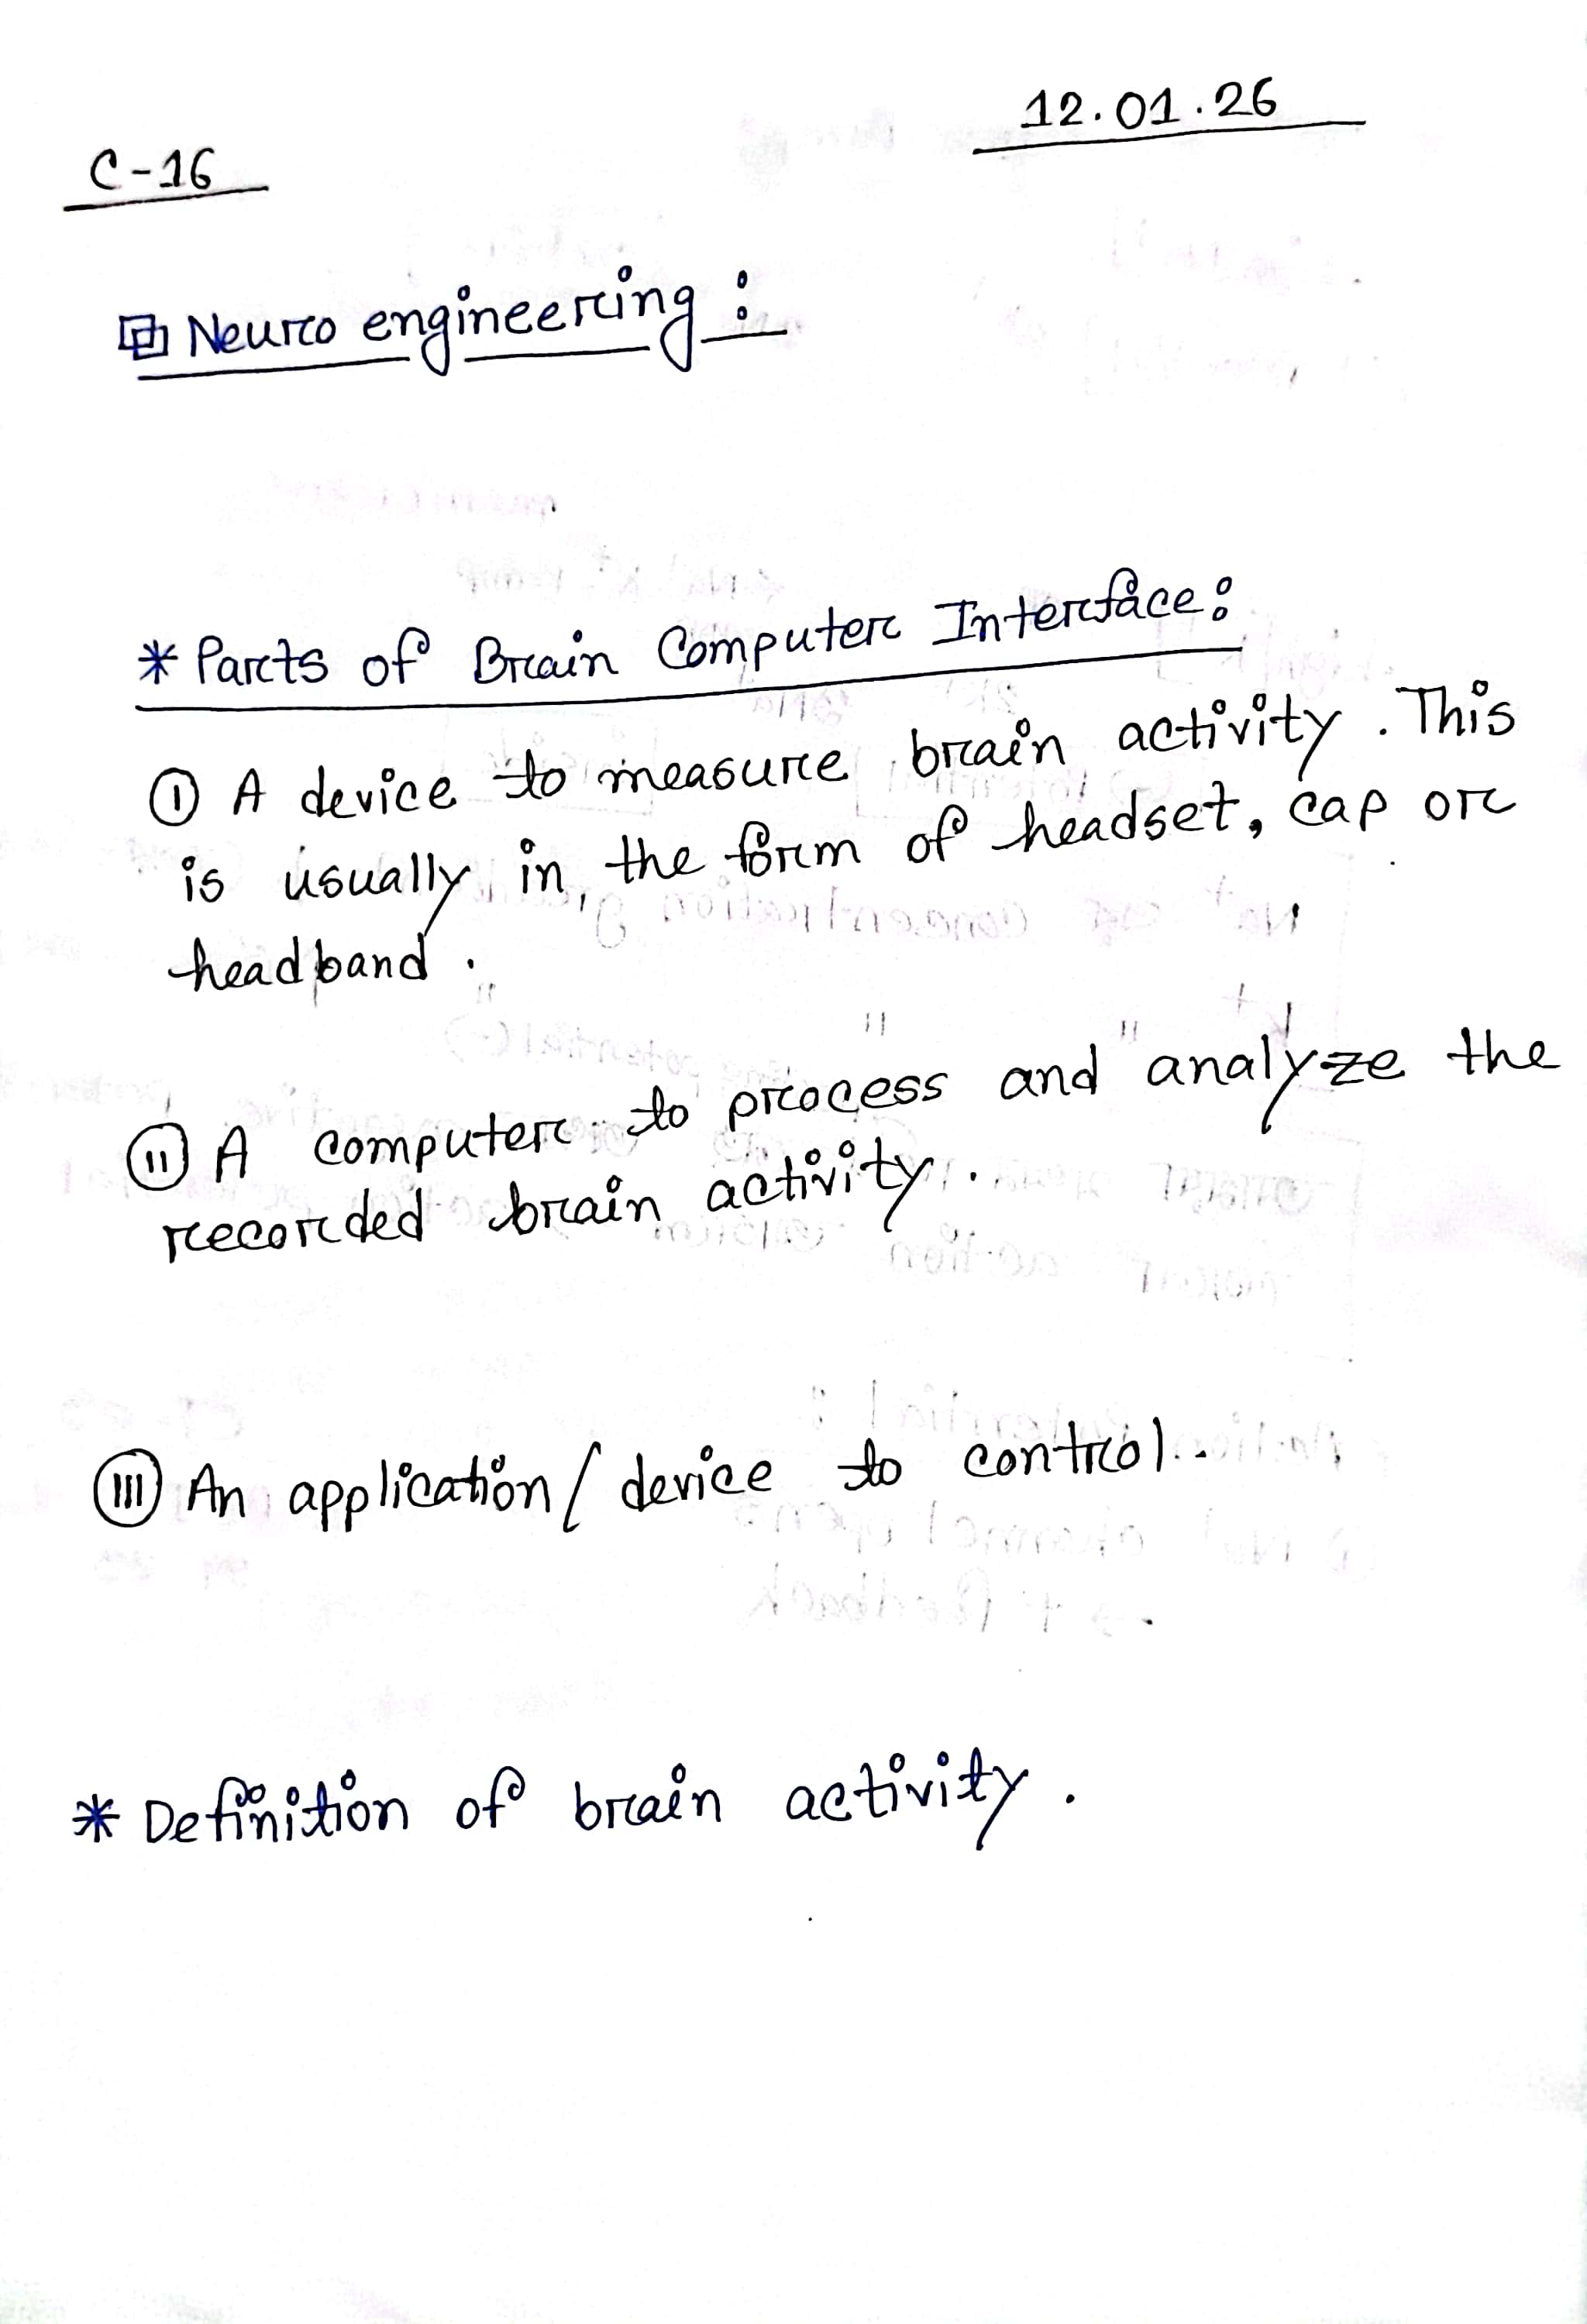 12.01.26
C-16
Neuro engineering :
* Parts of Brain Computer Interface :
(I) A device to measure brain activity. This
is usually in the form of headset, cap or
headband.
(II) A computer to process and analyze the
recorded brain activity.
(III) An application/device to control.
* Definition of brain activity.